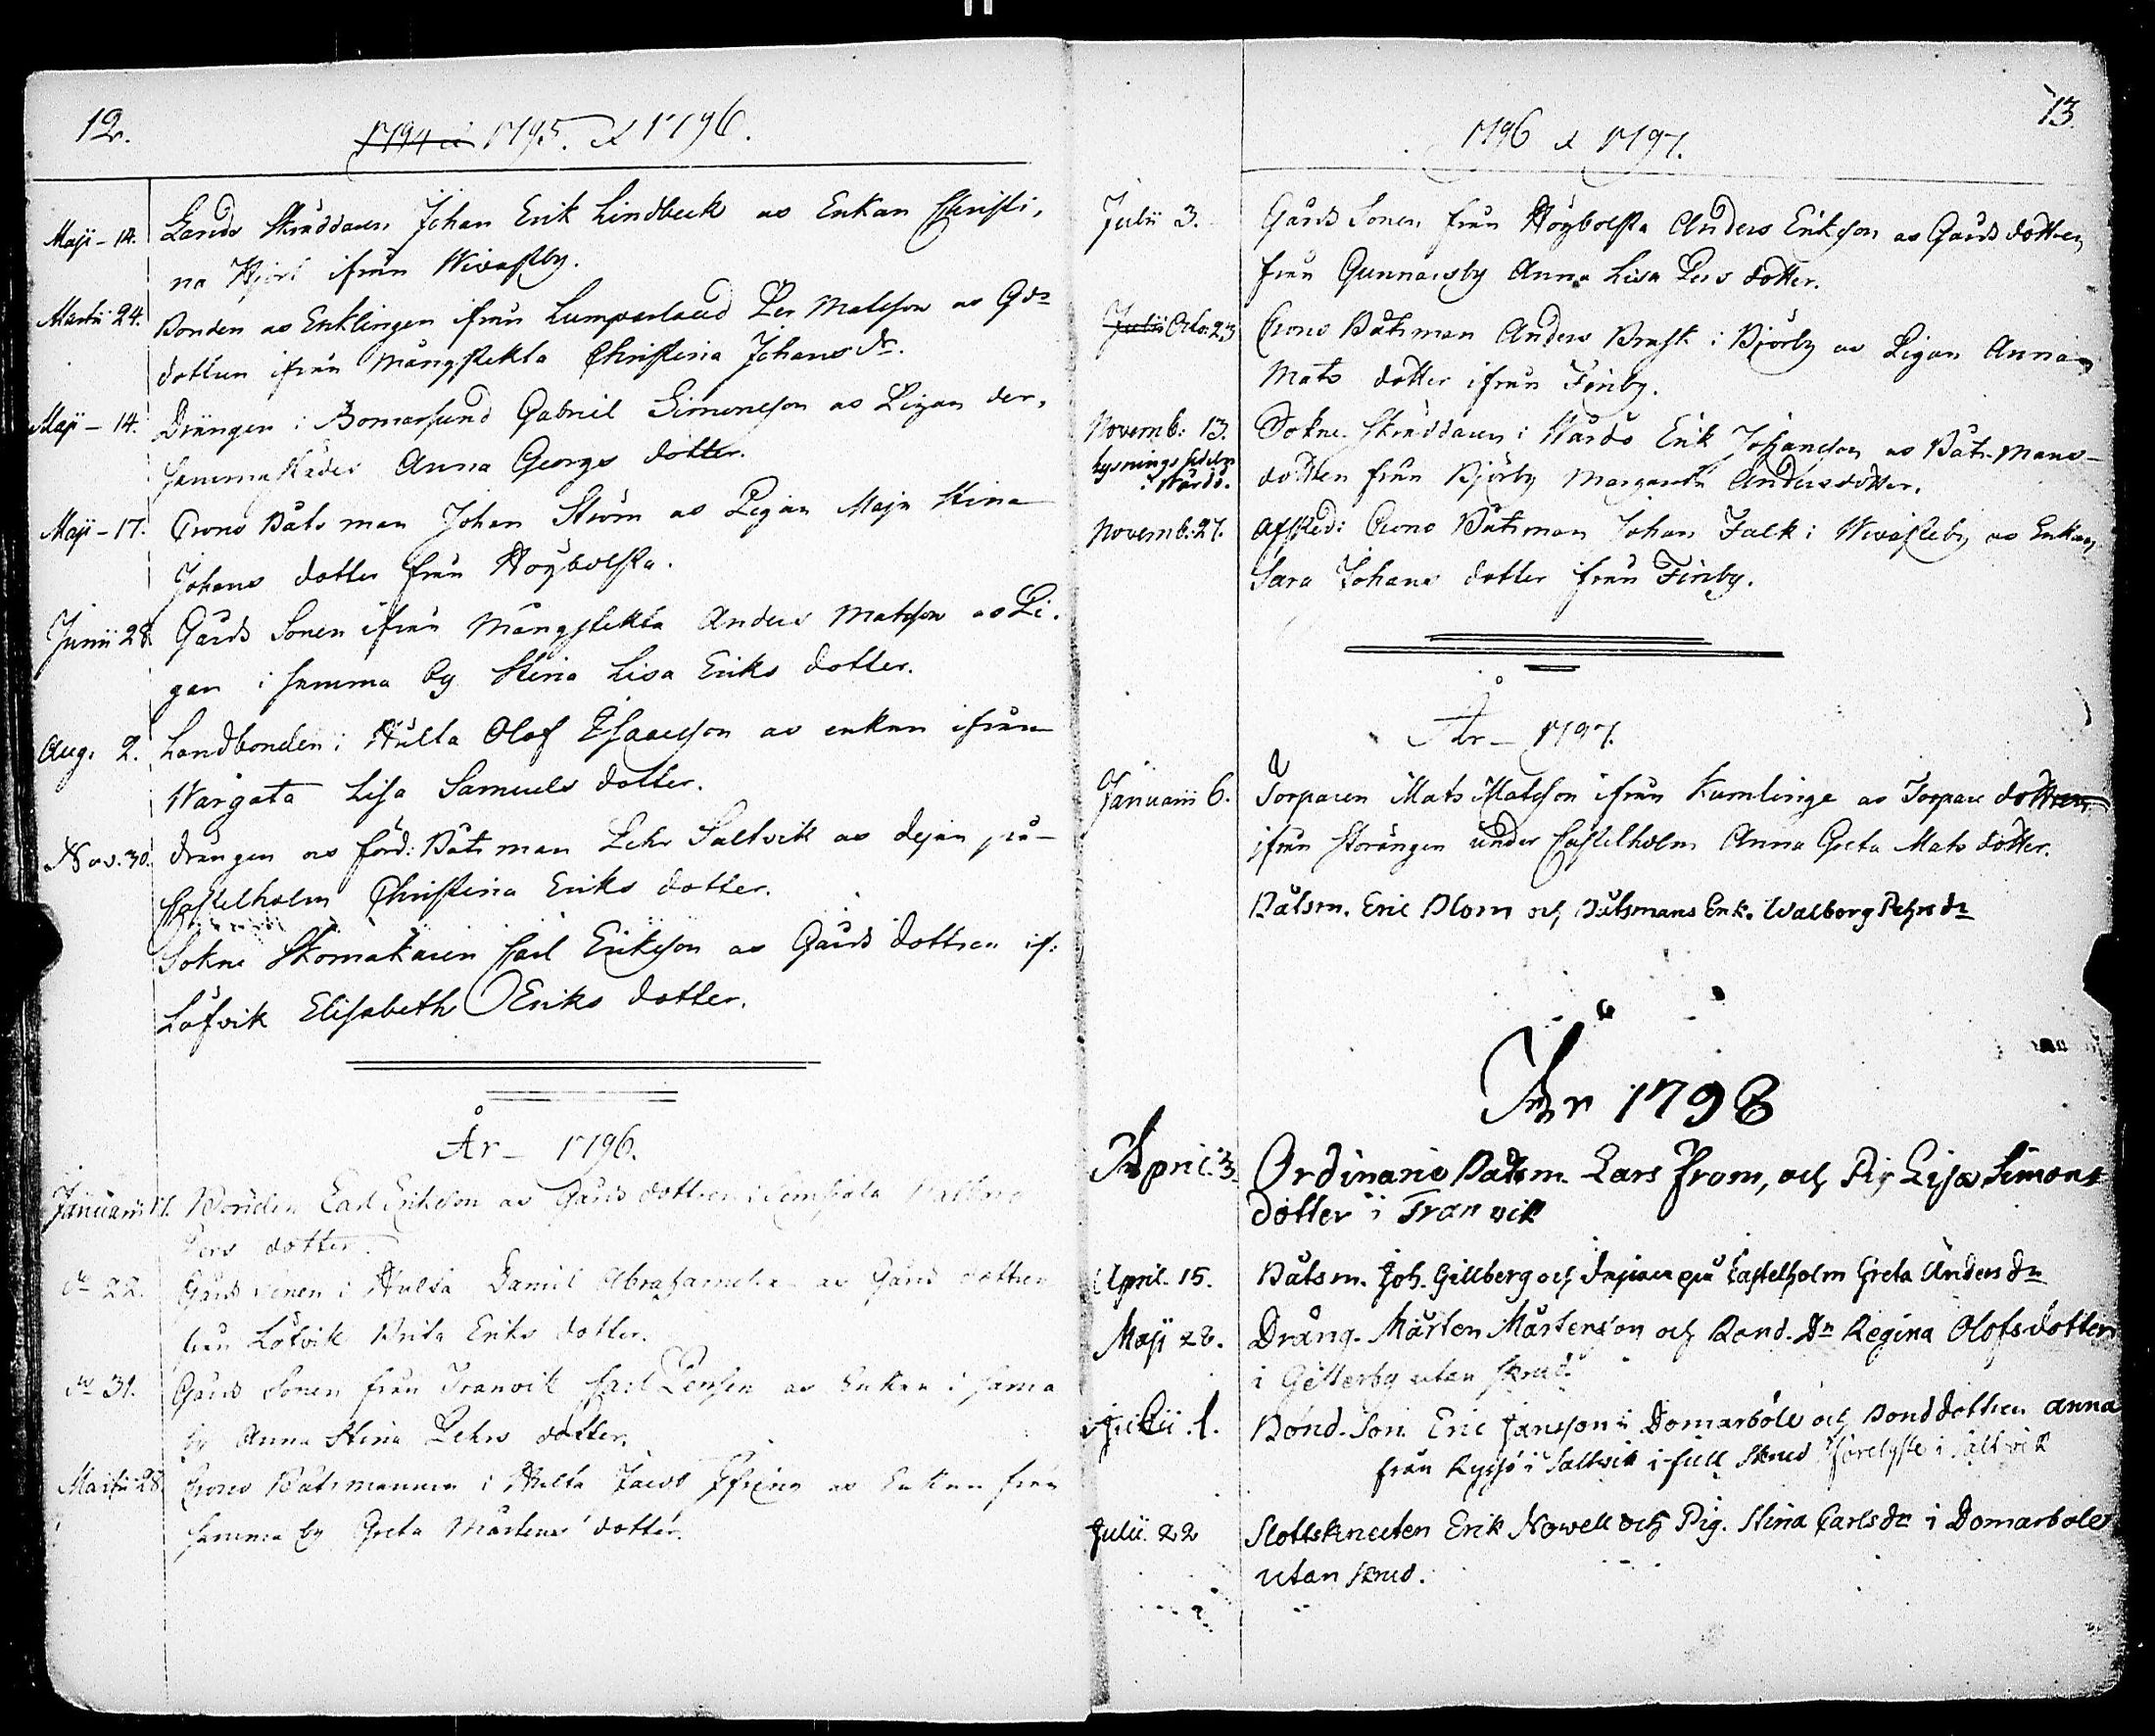 12.
1794 å 1795. & 1796.
Maji - 14. Lands Skräddaren Johan Erik Lindbeck as Enkan Christi,
na Hjort ifrån Wivastby.
Martii 24. Bonden as Enklingen ifrån Lumparland Per Matsson as Gds
dottren ifrån Mångstekta Christina Johans dr.
Maji - 14. Drängen i Bomarsund Gabriel Simonsson as Pigan der,
sammastädes Anna Georgs dotter.
Maji - 17. Crono Båtsman Johan Ström as Pigan Maja Stina
Johans dotter från Höybolsta.
Junii 28. Gårds Sonen ifrån Mångstekta Anders Matsson as Pi.
gan i samma by Stina Lisa Eriks dotter.
Aug. 2. Landbonden i Hulta Olof Isaacsson as enkan ifrån
Wårgata Lisa Samuels dotter.
Nov. 30. drängen as förd: Båtsman Pehr Saltvik as dejan på
Castelholm Christina Eriks dotter.
Sokne Skomakaren Carl Eriksson as Gårds dottren if:
Löfvik Elisabeth Eriks dotter.
År - 1796.
Januarii 17. Bonden Carl Eriksson as Gårds dottren i
Pers dotter.
do 22. Gårds Sonen i Hulta Daniel Abrahamsson as Gårds dottren
från Löfvik Brita Eriks dotter.
do 31. Gårds Sonen från Tranvik Carl Jonsson as Enkan i sama
by Anna Stina Pehrs dotter.
Martii 28. Crono Båtsmannen i Hulta Jacob as Enkan från
samma by Greta Mårtens dotter.
13.
1796 & 1797.
Julii 3. Gårds Sonen från Höybolsta Anders Eriksson as Gårds dottren
från Gunnarsby Anna Lisa Pers dotter.
Julii Octo. 23 Crono Båtsman Anders Brask i Björby as Pigan Anna
Mats dotter ifrån Finby.
Novemb: 13. Sokne Skräddaren i Wårdö Erik Johansson as Båts mans
lysnings sedeln
i Wårdö. dottren från Björby Margareta Andersdotter.
Novemb. 27. Afsked: Crono Båtsman Johan Falk i Wivasteby as Enkan
Sara Johans dotter från Finby.
År - 1797.
Januarii 6. Torparen Mats Matsson ifrån Kumlinge as Torpare dottren
ifrån Storängen under Castelholm Anna Greta Mats dotter.
Båtsm. Eric Blom och Båtsmans Enk. Walborg Pehrs dr
År 1798
April. 3. Ordinarie Båtsm. Lars From, och Pig Lisa Simons
dotter i Tranvik
April. 15. Båtsm. Joh. Gillberg och dejan på Castelholm Greta Anders dr
Maji 28. Dräng. Mårten Mårtensson och Bond. Dr Regina Olofsdotter
i Getterby utan skrud.
Julii. 1. Bond. Son Eric Jansson i Domarböle och Bonddottren Anna
från Ryssö i Saltvik i full Skrud förelyste i Saltvik
Julii. 22 Slottskneckten Erik Nowell och Pig. Stina Carlsdr i Domarbole
utan skrud.